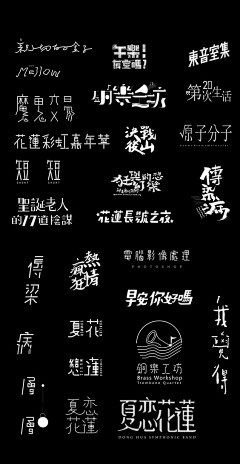 Mellow
午樂！
有空嗎？
東音室集
第20次生活
魔男X六月
花蓮彩虹嘉年華
決戰
後山
原子分子
短 短
SHORT SHORT
傳染病
聖誕老人
的17道陰謀
花蓮長號之夜
傳
染
病
瘋狂
熱情
電腦影像處理
PHOTOSHOP
早安你好嗎
我覺得
夏花
戀蓮
銅樂工坊
Brass Workshop
Trombone Quartet
層
層
夏恋
花蓮
夏恋花蓮
DONG HUA SYMPHONIC BAND